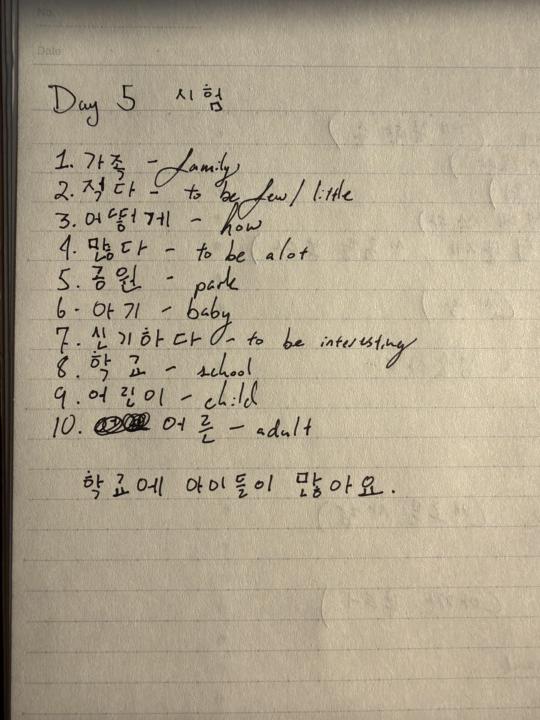 No.
Date
Day 5 시험
1. 가족 - family
2. 적다 - to be few/little
3. 어떻게 - how
4. 많다 - to be alot
5. 공원 - park
6. 아기 - baby
7. 신기하다 - to be interesting
8. 학교 - school
9. 어린이 - child
10. 어른 - adult
학교에 아이들이 많아요.